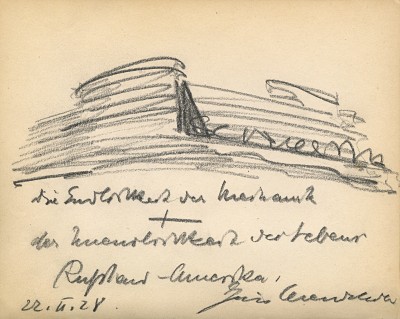 die Endlichkeit der Mechanik
+
der Unendlichkeit des Lebens
Rußland-Amerika.
22.II.28. Eric Mendelsohn